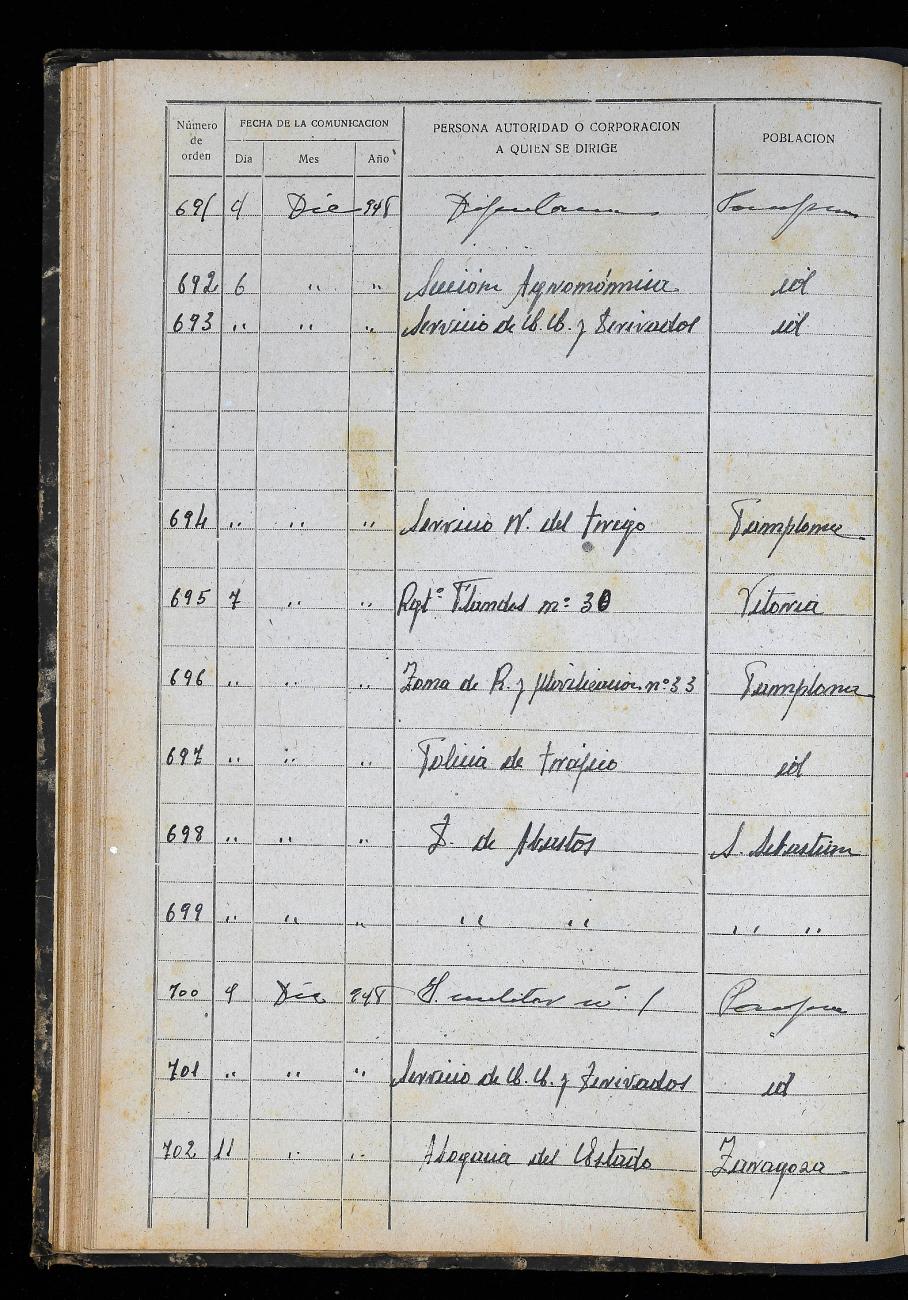 Número de orden | FECHA DE LA COMUNICACION | PERSONA AUTORIDAD O CORPORACION A QUIEN SE DIRIGE | POBLACION
Día | Mes | Año
691 4 Dic 948
692 6 " " Sección Agronómica id
693 " " " Servicio de C.C. y Derivados id
694 " " " Servicio N. del trigo Pamplona
695 7 " " Rgtº Flandes nº 30 Vitoria
696 " " " Zona de R. y Movilización nº 33 Pamplona
697 " " " Policia de tráfico id
698 " " " D. de Abastos S. Sebastian
699 " " " " " " "
700 9 Dic 948 G. militar nº 1
701 " " " Servicio de C.C. y Derivados id
702 11 " " Abogacia del Estado Zaragoza